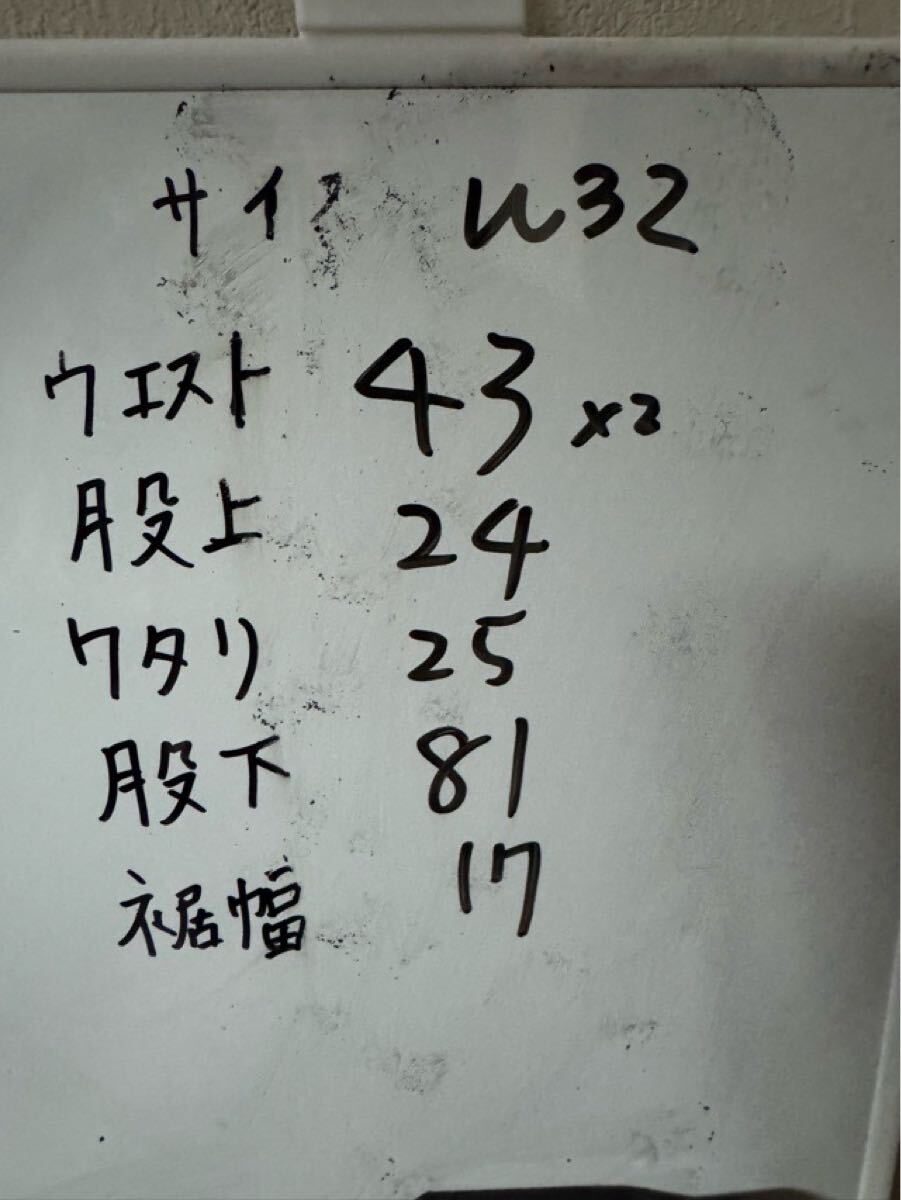 サイズ W32
ウエスト 43 x2
股上 24
ワタリ 25
股下 81
裾幅 17